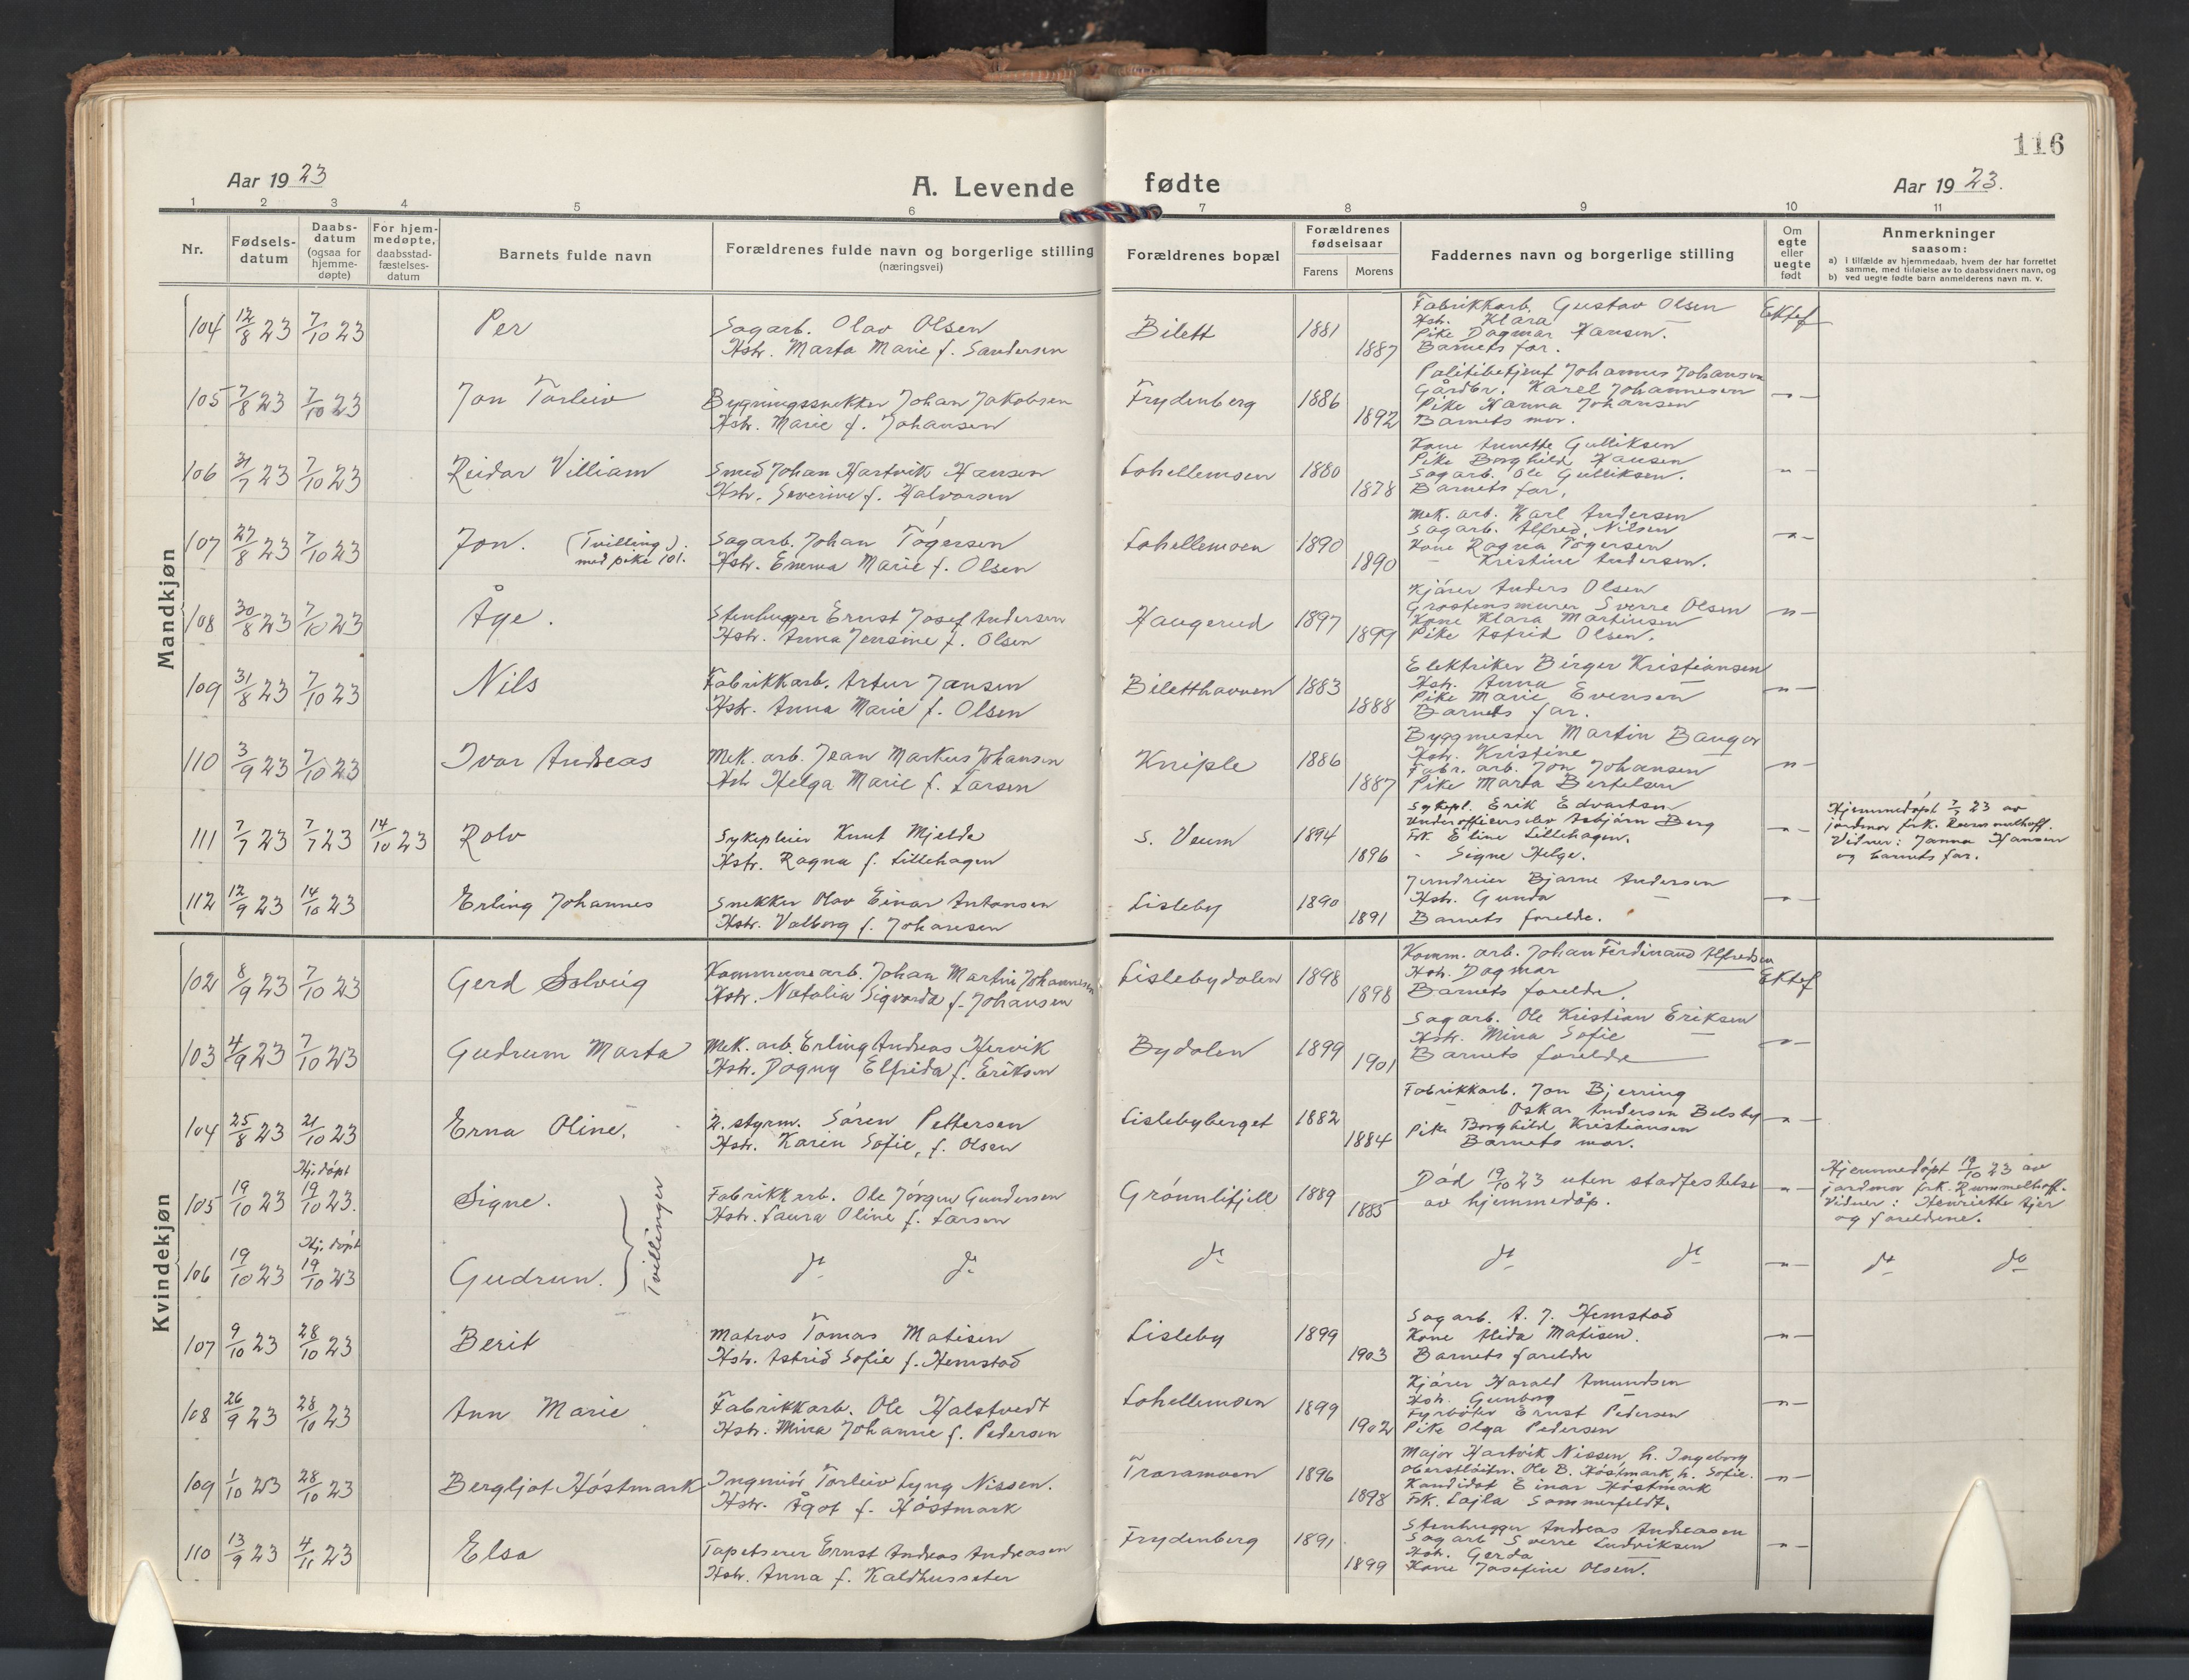 116
Aar 1923
A. Levende fødte
Aar 1923.
1 2 3 4 5 6 7 8 9 10 11
Nr.
Fødselsdatum
Daabsdatum (ogsaa for hjemmedøpte)
For hjemmedøpte, daabsstadfæstelsesdatum
Barnets fulde navn
Forældrenes fulde navn og borgerlige stilling (næringsvei)
Forældrenes bopæl
Forældrenes fødselsaar
Farens Morens
Faddernes navn og borgerlige stilling
Om egte eller uegte født
Anmerkninger saasom:
a) i tilfælde av hjemmedaab, hvem der har forrettet samme, med tilføielse av to daabsvidners navn, og
b) ved uegte fødte barn anmelderens navn m. v.
Mandkjøn
104 12/8 23 7/10 23 Per
Sagarb. Olav Olsen
Hstr. Marta Marie f. Sandersen
Bilett 1881 1887
Fabrikkarb. Gustav Olsen
Hstr. Klara —
Pike Dagmar Hansen.
Barnets far.
Ektef
105 7/8 23 7/10 23 Jon Torleiv
Bygningssnekker Johan Jakobsen
Hstr. Marie f. Johansen
Frydenberg 1886 1892
Politibetjent Johannes Johansen
Gårdbr. Karel Johannesen
Pike Hanna Johansen
Barnets mor.
—"—
106 31/7 23 7/10 23 Reidar Villiam
Smed Johan Hartvik Hansen
Hstr. Severine f. Halvorsen
Lahellemoen 1880 1878
Kone Annette Gulliksen
Pike Borghild Hansen
Sagarb. Ole Gulliksen.
Barnets far.
—"—
107 27/8 23 7/10 23 Jon. (Tvilling) med pike 101.
Sagarb. Johan Tøgersen
Hstr. Emma Marie f. Olsen
Lahellemoen 1890 1890
Mek. arb. Karl Andersen
Sagarb. Alfred Nilsen
Kone Ragna Tøgersen
— Kristine Andersen.
—"—
108 30/8 23 7/10 23 Åge.
Stenhugger Ernst Josef Andersen
Hstr. Anna Jensine f. Olsen
Haugerud 1897 1899
Kjører Anders Olsen
Grastensmurer Sverre Olsen
Kone Klara Martinsen
Pike Astrid Olsen.
—"—
109 31/8 23 7/10 23 Nils
Fabrikkarb. Artur Jansen
Hstr. Anna Marie f. Olsen
Biletthavven 1883 1888
Elektriker Birger Kristiansen
Hstr. Anna —
Pike Marie Evensen
Barnets far.
—"—
110 3/9 23 7/10 23 Ivar Andreas
Mek. arb. Jean Markus Johansen
Hstr Helga Marie f. Larsen
Kniple 1886 1887
Byggmester Martin Bangor
Hstr. Kristine —
Fabr. arb. Jon Johansen
Pike Marta Bertelsen
—"—
111 7/7 23 7/7 23 14/10 23 Rolv
Sykepleier Knut Mjelde
Hstr. Ragna f. Lillehagen
S. Veum 1894 1896
Sykepl. Erik Edvartsen
Underoffiserselev Asbjørn Berg
Frk. Eline Lillehagen.
" Signe Helge.
—"—
Hjemmedøpt 7/7 23 av
jordmor frk. Rummelhoff.
Vidner: Janna Hansen
og barnets far.
112 12/9 23 14/10 23 Erling Johannes
Snekker Olav Einar Antonsen
Hstr. Valborg f. Johansen
Lisleby 1890 1891
Jerndreier Bjarne Andersen
Hstr. Gunda —
Barnets forelde.
—"—
Kvindekjøn
102 8/9 23 7/10 23 Gerd Solveig
Kommunearb. Johan Martin Johannesen
Hstr. Natalia Sigvarda f. Johansen
Lislebydalen 1898 1898
Komm. arb. Johan Ferdinand Alfredsen
Hstr. Dagmar —
Barnets forelde.
Ektef
103 4/9 23 7/10 23 Gudrum Marta
Mek. arb. Erling Andreas Hervik
Hstr. Dagny Elfrida f. Eriksen
Bydalen 1899 1901
Sagarb. Ole Kristian Eriksen
Hstr. Mina Sofie —
Barnets forelde
—"—
104 25/8 23 21/10 23 Erna Oline.
2. styrm. Søren Pettersen
Hstr. Karen Sofie, f. Olsen
Lislebyberget 1882 1884
Fabrikkarb. Jon Bjerring
— Oskar Andersen Belsby
Pike Borghild Kristiansen
Barnets mor.
—"—
105 19/10 23 Hj. døpt 19/10 23. Signe.
Tvillinger
Fabrikkarb. Ole Jørgen Gundersen
Hstr. Laura Oline f. Larsen
Grønnlifjell 1889 1885
Død 19/10 23 uten stadfestelse
av hjemmedåp.
—"—
Hjemmedøpt 19/10 23 av
jordmor frk. Rummelhoff.
Vidner: Henriette Kjer
og foreldrene.
106 19/10 23 Hj. døpt 19/10 23 Gudrun.
do do do do do —"— do do
107 9/10 23 28/10 23 Berit
Matros Tomas Matisen
Hstr. Astrid Sofie f. Hemstad
Lisleby 1899 1903
Sagarb. A. J. Hemstad
Kone Alida Matisen.
Barnets forelde
—"—
108 26/9 23 28/10 23 Ann Marie
Fabrikkarb. Ole Halstvedt
Hstr. Mina Johanne f. Pedersen
Lahellemoen 1899 1902
Kjører Harald Amundsen
Hstr. Gunborg —
Fyrbøter Ernst Pedersen
Pike Olga Pedersen
—"—
109 1/10 23 28/10 23 Bergljot Høstmark
Ingeniør Torleiv Lyng Nissen.
Hstr. Ågot f. Høstmark
Traramoen 1896 1898
Major Hartvik Nissen, h. Ingeborg
Oberstløitn. Ole B. Høstmark, h. Sofie.
Kandidat Einar Høstmark
Frk. Lajla Sommerfeldt.
—"—
110 13/9 23 4/11 23 Elsa
Tapetserer Ernst Andreas Andreasen
Hstr. Anna f. Kaldhusseter
Frydenberg 1891 1899
Stenhugger Andreas Andreasen
Sagarb Sverre Ludviksen
Hstr. Gerda —
Kone Josefine Olsen.
—"—